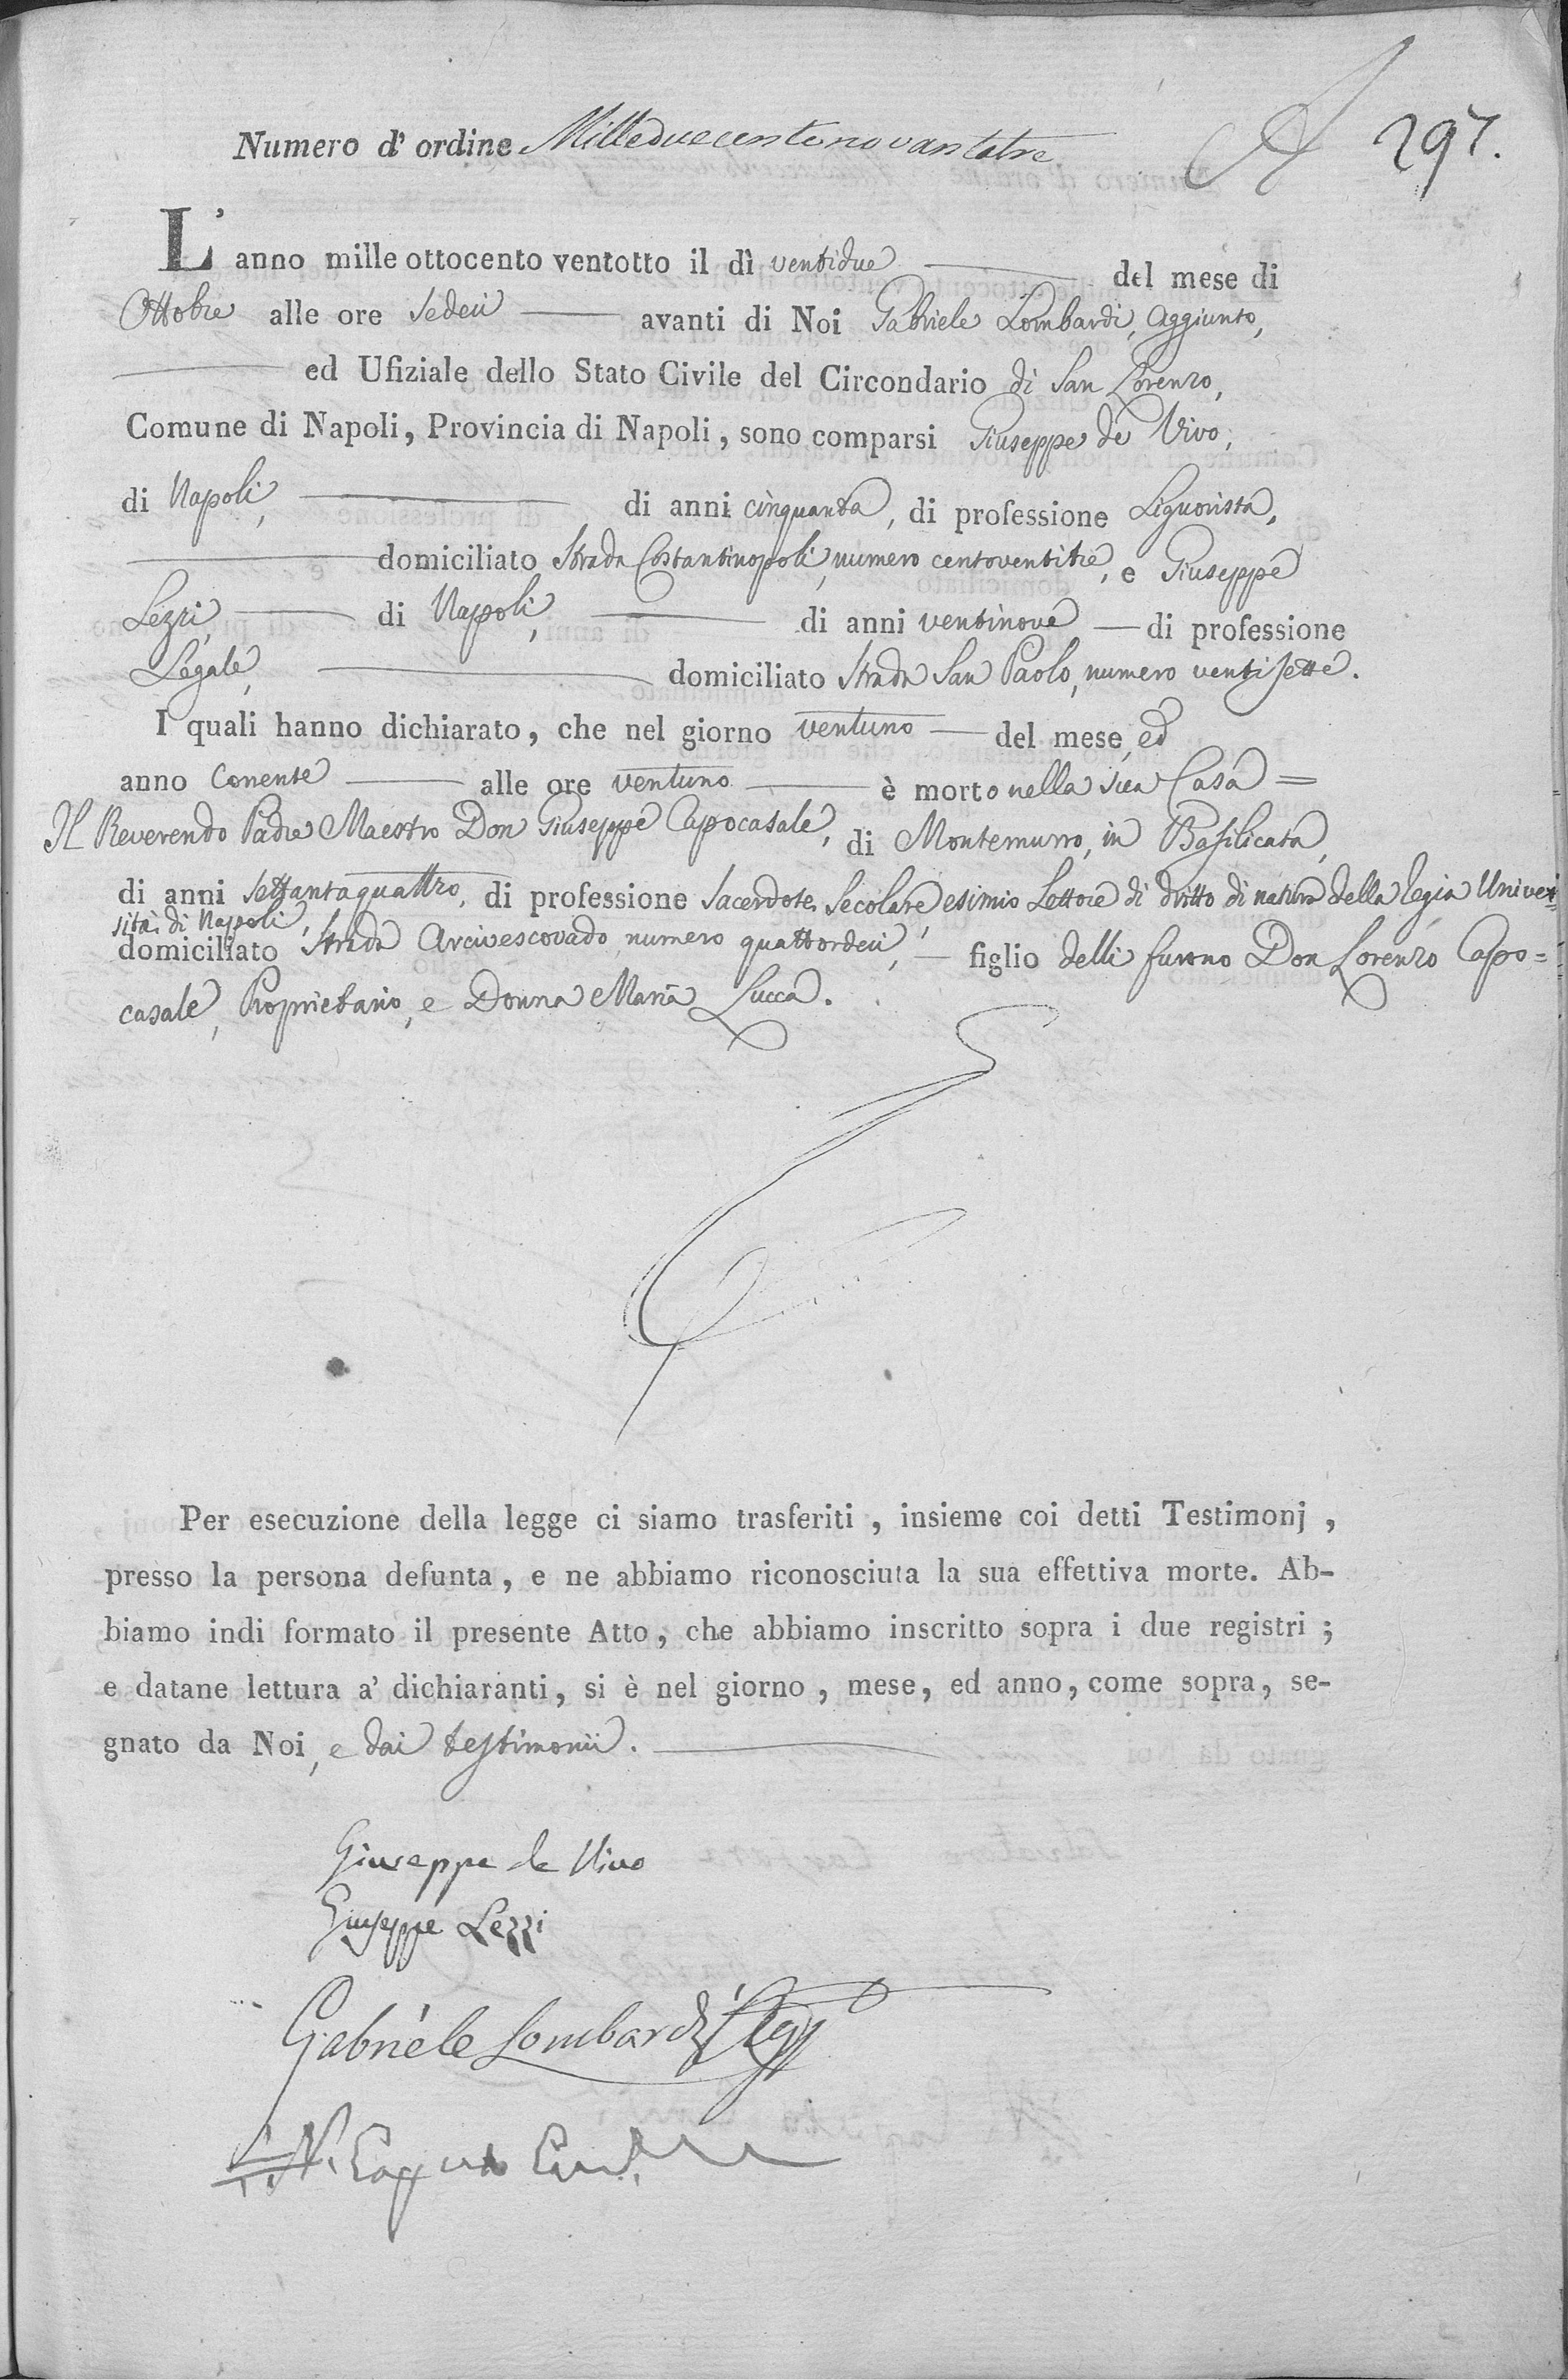 Numero d' ordine Milleduecentonovantatre
297.
L' anno mille ottocento ventotto il dì ventidue del mese di
Ottobre alle ore sedeci avanti di Noi Gabriele Lombardi, Aggiunto,
ed Ufiziale dello Stato Civile del Circondario di San Lorenzo,
Comune di Napoli, Provincia di Napoli, sono comparsi Giuseppe de Vivo,
di Napoli, di anni cinquanta, di professione Liguorista,
domiciliato Strada Costantinopoli, numero centoventitre, e Giuseppe
Lezzi, di Napoli, di anni ventinove — di professione
Legale, domiciliato Strada San Paolo, numero ventisette.
I quali hanno dichiarato, che nel giorno ventuno — del mese, ed
anno corrente — alle ore ventuno — è morto nella sua Casa =
Il Reverendo Padre Maestro Don Giuseppe Capocasale, di Montemurro, in Basilicata,
di anni settantaquattro, di professione Sacerdote Secolare esimio Lettore di dritto di natura della regia Univer=
sità di Napoli,
domiciliato Strada Arcivescovado, numero quattordeci, — figlio delli furono Don Lorenzo Capo=
casale, Proprietario, e Donna Maria Lucca.
Per esecuzione della legge ci siamo trasferiti, insieme coi detti Testimonj,
presso la persona defunta, e ne abbiamo riconosciuta la sua effettiva morte. Ab-
biamo indi formato il presente Atto, che abbiamo inscritto sopra i due registri;
e datane lettura a' dichiaranti, si è nel giorno, mese, ed anno, come sopra, se-
gnato da Noi, e dai testimonii.
Giuseppe de Vivo
Giuseppe Lezzi
Gabriele Lombardi